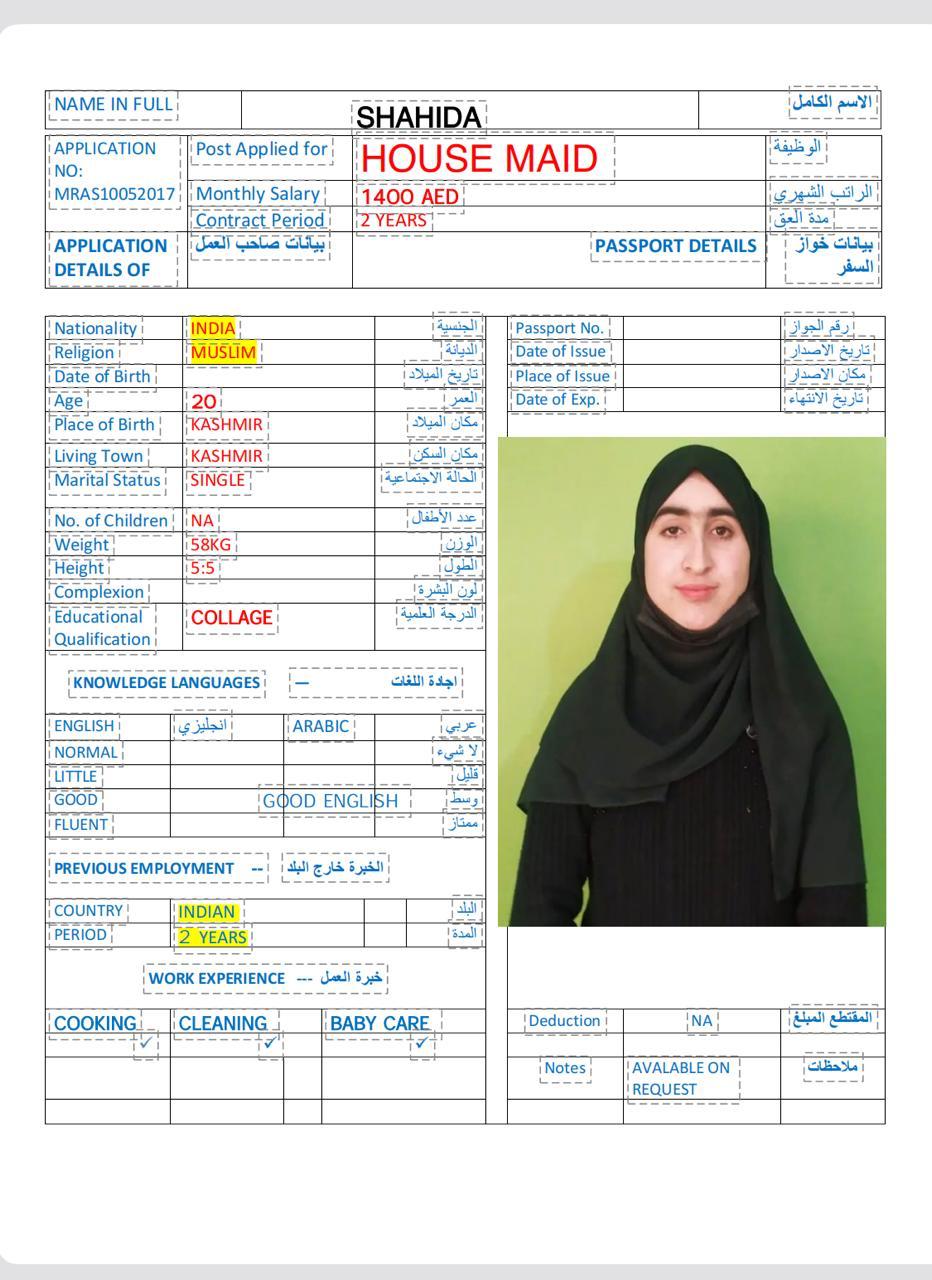 NAME IN FULL SHAHIDA الاسم الكامل
APPLICATION NO: MRAS10052017
Post Applied for HOUSE MAID الوظيفة
Monthly Salary 1400 AED الراتب الشهري
Contract Period 2 YEARS مدة العق
APPLICATION DETAILS OF بيانات صاحب العمل PASSPORT DETAILS بيانات خواز السفر
Nationality INDIA الجنسية
Religion MUSLIM الديانة
Date of Birth تاريخ الميلاد
Age 20 العمر
Place of Birth KASHMIR مكان الميلاد
Living Town KASHMIR مكان السكن
Marital Status SINGLE الحالة الاجتماعية
No. of Children NA عدد الأطفال
Weight 58KG الوزن
Height 5:5 الطول
Complexion لون البشرة
Educational Qualification COLLAGE الدرجة العلمية
KNOWLEDGE LANGUAGES — اجادة اللغات
ENGLISH انجليزي ARABIC عربي
NORMAL لا شيء
LITTLE قليل
GOOD GOOD ENGLISH وسط
FLUENT ممتاز
PREVIOUS EMPLOYMENT -- الخبرة خارج البلد
COUNTRY INDIAN البلد
PERIOD 2 YEARS المدة
WORK EXPERIENCE --- خبرة العمل
COOKING CLEANING BABY CARE
✓ ✓ ✓
Passport No. رقم الجواز
Date of Issue تاريخ الاصدار
Place of Issue مكان الاصدار
Date of Exp. تاريخ الانتهاء
Deduction NA المقتطع المبلغ
Notes AVALABLE ON REQUEST ملاحظات